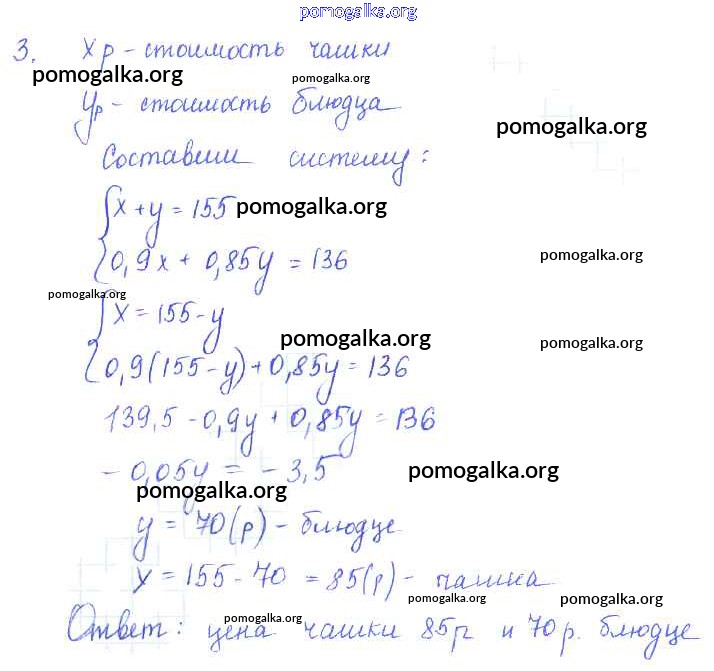 pomogalka.org
3. Xр - стоимость чашки
pomogalka.org pomogalka.org
Yр - стоимость блюдца
pomogalka.org
Составим систему:
{ x + y = 155 pomogalka.org
0,9x + 0,85y = 136 pomogalka.org
pomogalka.org
{ x = 155 - y
pomogalka.org pomogalka.org
0,9(155 - y) + 0,85y = 136
139,5 - 0,9y + 0,85y = 136
- 0,05y = - 3,5 pomogalka.org
pomogalka.org
y = 70(р) - блюдце
x = 155 - 70 = 85(р) - чашка
pomogalka.org pomogalka.org
pomogalka.org
Ответ: цена чашки 85р и 70р. блюдце